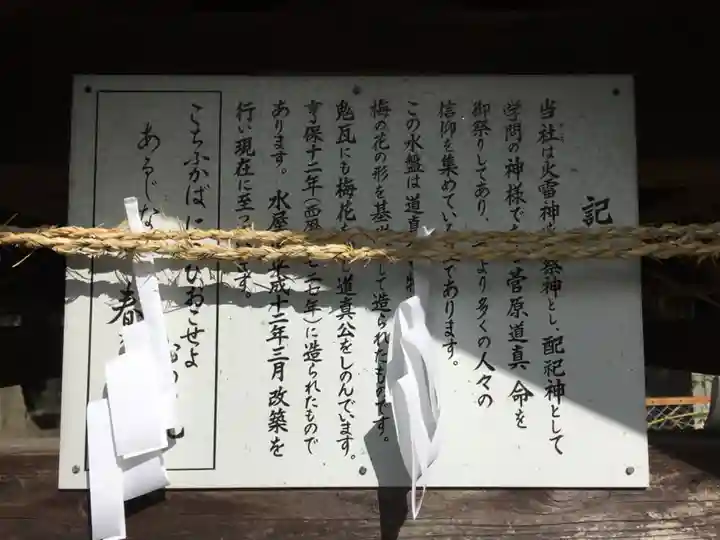 記
当社は火雷神 祭神とし、配祀神として
学問の神様で 菅原道真 命を
御祭りしてあり、 より多くの人々の
信仰を集めている であります。
この水盤は道真
梅の花の形を基 して造られたものです。
鬼瓦にも梅花を し道真公をしのんでいます。
享保十二年(西暦 七二七年)に造られたもので
あります。水屋 平成十二年三月改築を
行い現在に至って す。
こちふかばに ひおこせよ
あるじな
春